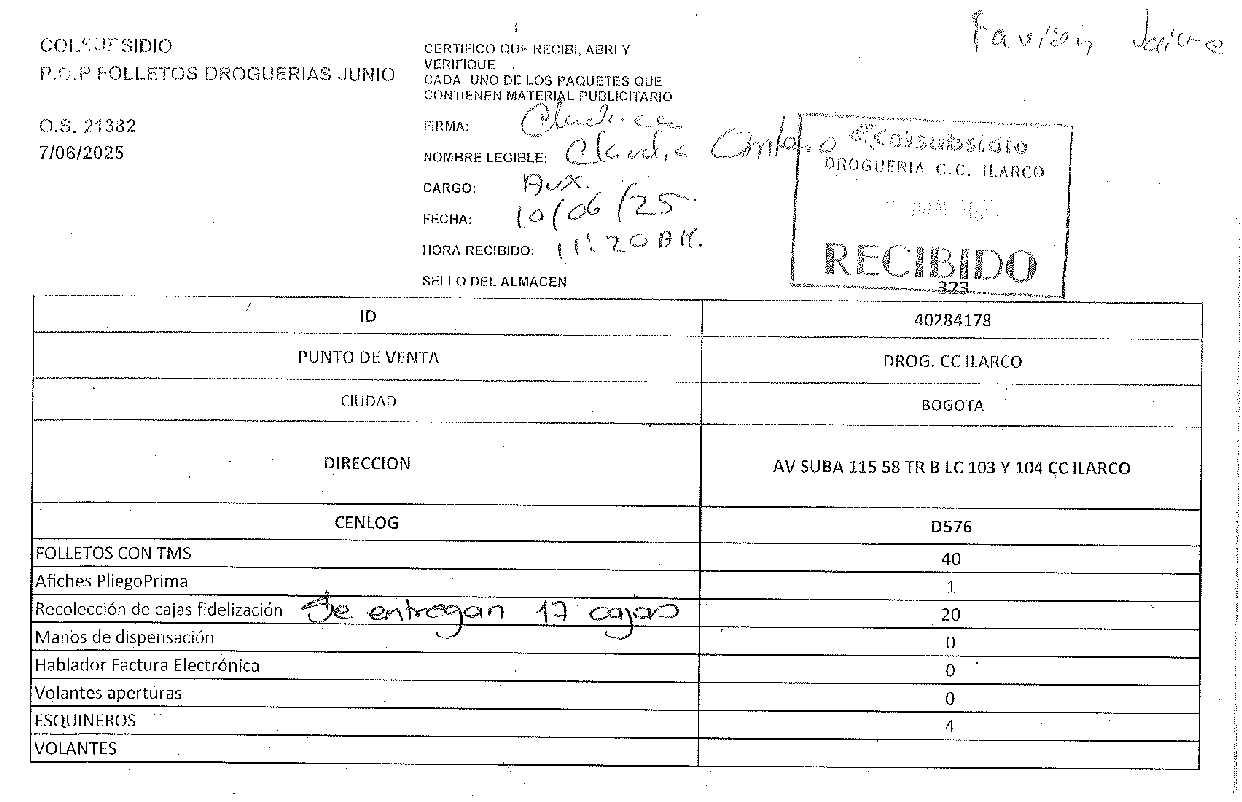 COLSUBSIDIO
P.O.P FOLLETOS DROGUERIAS JUNIO
O.S. 21382
7/06/2025
CERTIFICO QUE RECIBI, ABRI Y
VERIFIQUE
CADA UNO DE LOS PAQUETES QUE
CONTIENEN MATERIAL PUBLICITARIO
FIRMA:
NOMBRE LEGIBLE: Claudia
CARGO: Aux.
FECHA: 10/06/25.
HORA RECIBIDO: 11:20 AM.
SELLO DEL ALMACEN
Colsubsidio
DROGUERIA C.C. ILARCO
RECIBIDO
323
ID 40284178
PUNTO DE VENTA DROG. CC ILARCO
CIUDAD BOGOTA
DIRECCION AV SUBA 115 58 TR B LC 103 Y 104 CC ILARCO
CENLOG D576
FOLLETOS CON TMS 40
Afiches PliegoPrima 1
Recolección de cajas fidelización Se entregan 17 cajas 20
Manos de dispensación 0
Hablador Factura Electrónica 0
Volantes aperturas 0
ESQUINEROS 4
VOLANTES